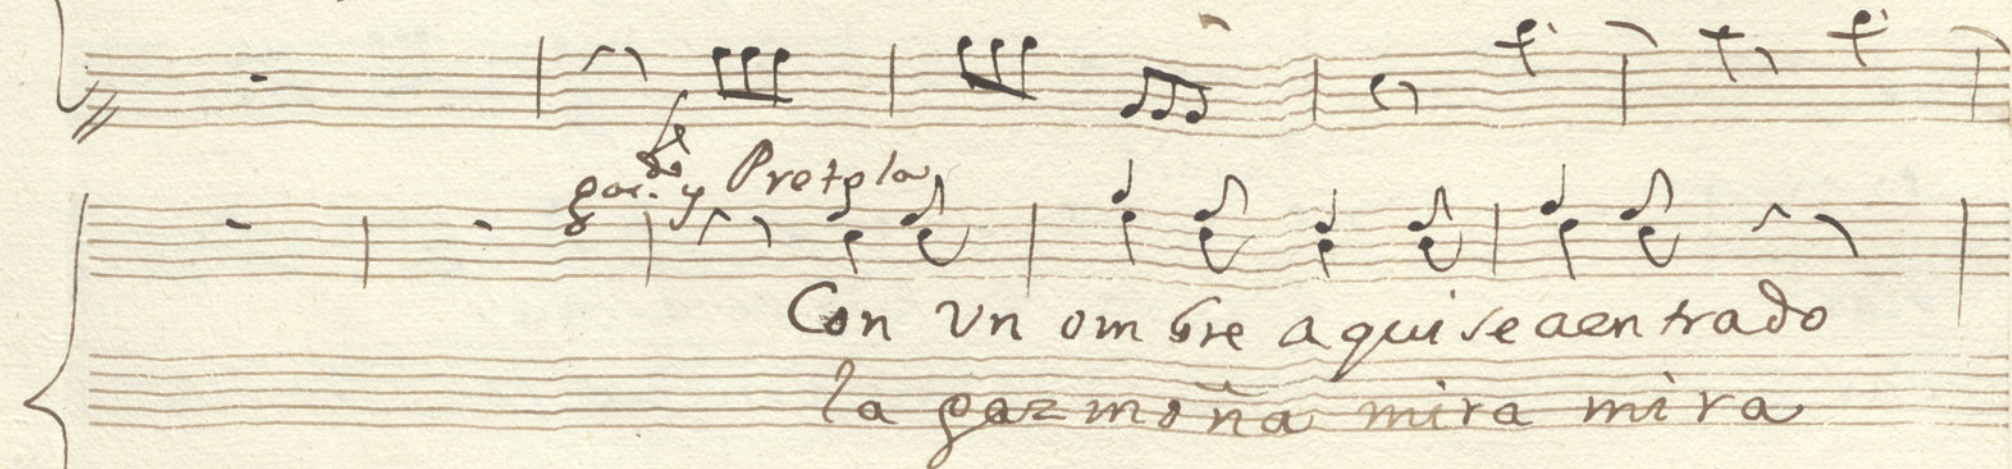 gar. y Pretola
Con Vn ombre aqui se a entrado
la gazmoña mira mira